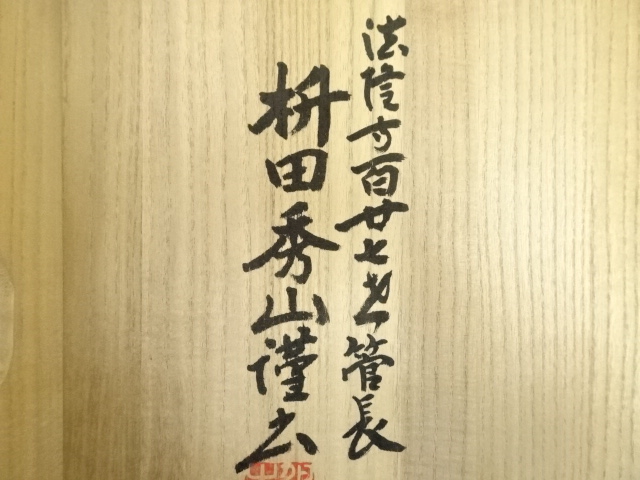 法隆寺百廿七世管長
枡田秀山謹書